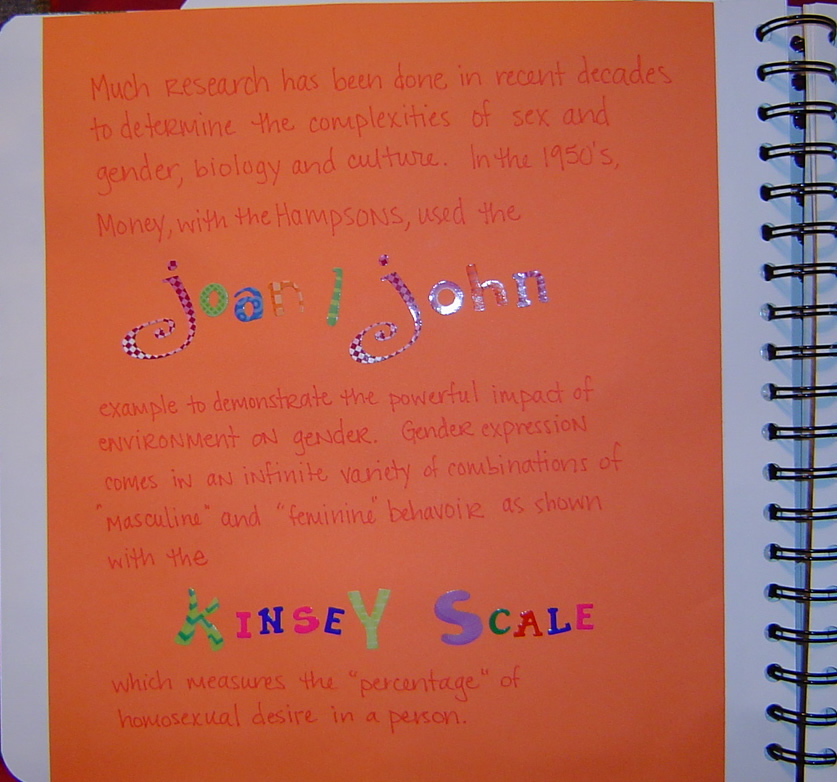 Much research has been done in recent decades
to determine the complexities of sex and
gender, biology and culture. In the 1950's,
Money, with the Hampsons, used the
Joan / John
example to demonstrate the powerful impact of
environment on gender. Gender expression
comes in an infinite variety of combinations of
"masculine" and "feminine" behavoir as shown
with the
KINSEY SCALE
which measures the "percentage" of
homosexual desire in a person.